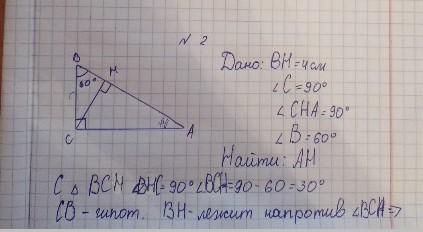 № 2
Дано: BH = 4 см
∠C = 90°
∠CHA = 90°
∠B = 60°
Найти: AH
B
H
60°
C
A
C △ BCH ∠BHC = 90° ∠BCH = 90 - 60 = 30°
CB - гипот. BH - лежит напротив ∠BCH =>